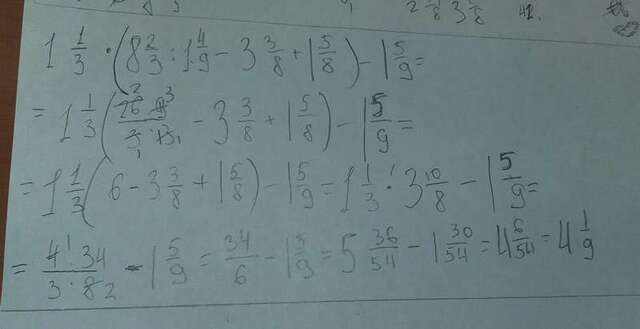 2 1/8 3 1/8
1 1/3 · (8 2/3 : 1 4/9 - 3 3/8 + 1 5/8) - 1 5/9 =
= 1 1/3 (26 · 9 / 3 · 13 - 3 3/8 + 1 5/8) - 1 5/9 =
= 1 1/3 (6 - 3 3/8 + 1 5/8) - 1 5/9 = 1 1/3 · 3 10/8 - 1 5/9 =
= 4 · 34 / 3 · 8 - 1 5/9 = 34/6 - 1 5/9 = 5 36/54 - 1 30/54 = 4 6/54 = 4 1/9